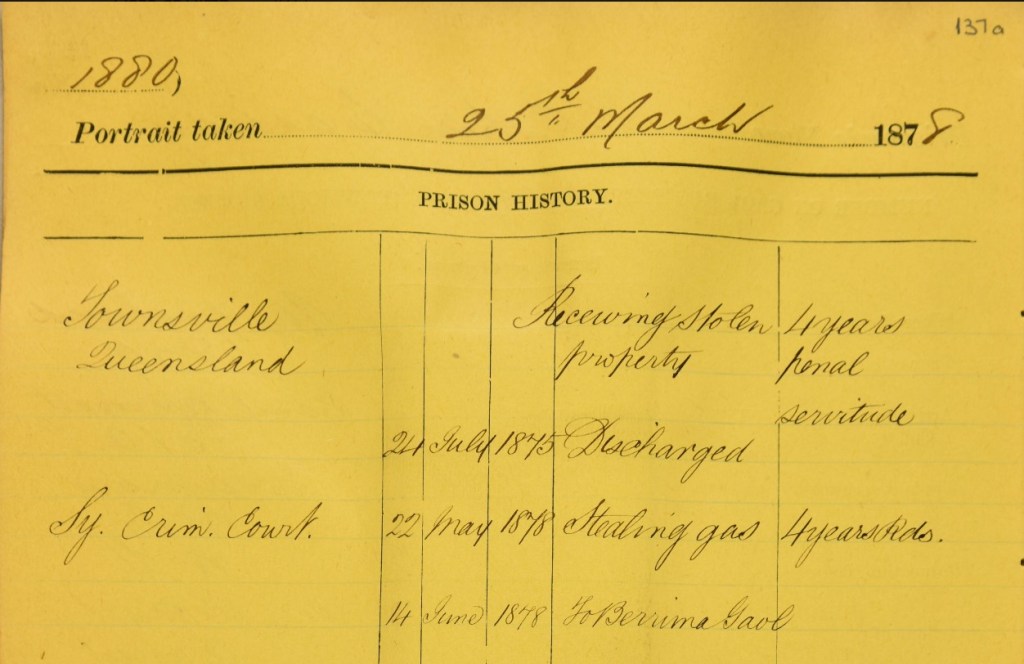 137a
1880)
Portrait taken 25th March 1878
PRISON HISTORY.
Townsville Receiving Stolen 4 years
Queensland property penal
servitude
24 July 1875 Discharged
Sy. Crim. Court. 22 May 1878 Stealing gas 4 years Rds.
14 June 1878 To Berrima Gaol